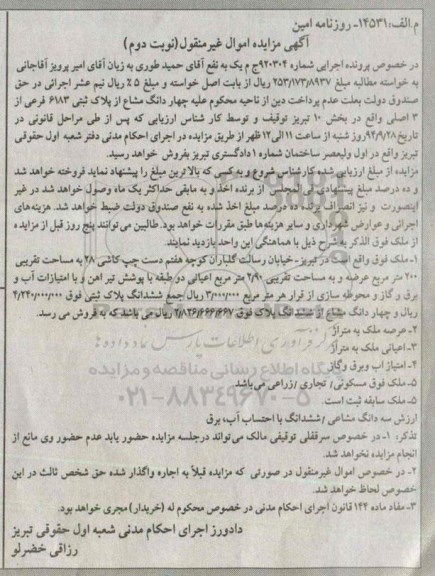 م.الف:۱۴۵۳۱- روزنامه امین
آگهی مزایده اموال غیرمنقول(نوبت دوم)
در خصوص پرونده اجرایی شماره ۹۲۰۳۰۴ج م یک به نفع آقای حمید طوری به زیان آقای امیر پرویز آقاجانی
به خواسته مطالبه مبلغ ۲۵۳/۱۷۳/۸۹۳۷ ریال از بابت اصل خواسته و مبلغ ۵٪ ریال نیم عشر اجرائی در حق
صندوق دولت بعلت عدم پرداخت دین از ناحیه محکوم علیه چهار دانگ مشاع از پلاک ثبتی ۶۱۸۳ فرعی از
۳ اصلی واقع در بخش ۱۰ تبریز توقیف و توسط کار شناس ارزیابی که پس از طی مراحل قانونی در
تاریخ۹۴/۹/۲۸روز شنبه از ساعت ۱۱الی۱۲ ظهر از طریق مزایده در اجرای احکام مدنی دفتر شعبه اول حقوقی
تبریز واقع در اول ولیعصر ساختمان شماره ۱دادگستری تبریز بفروش خواهد رسید.
مزایده از مبلغ ارزیابی شده کارشناس شروع و به کسی که بالاترین مبلغ را پیشنهاد نماید فروخته خواهد شد
و ده درصد مبلغ پیشنهادی فی المجلس از برنده اخذ و به مابقی حداکثر یک ماه وصول خواهد شد در غیر
اینصورت و نیز انصراف برنده ده درصد مبلغ اخذ شده به نفع صندوق دولت ضبط خواهد شد. هزینه‌های
اجرائی و عوارض شهرداری و سایر هزینه‌ها طبق مقررات خواهد بود.طالبین می توانند پنج روز قبل از مزایده
از ملک فوق الذکر به شرح ذیل با هماهنگی این واحد بازدید نمایند.
۱-ملک فوق واقع است در تبریز- خیابان رسالت گلباران کوچه هفتم دست چپ کاشی ۲۸ به مساحت تقریبی
۲۰۰ متر مربع عرصه و به مساحت تقریبی ۲/۹۰ متر مربع اعیانی دو طبقه با پوشش تیر اهن و با امتیازات آب و
برق و گاز و محوطه سازی از قرار هر متر مربع ۳/۰۰۰/۰۰۰ ریال جمع ششدانگ پلاک ثبتی فوق ۴/۲۴۰/۰۰۰/۰۰۰
ریال و چهار دانگ مشاع از ششدانگ پلاک فوق ۲/۸۲۶/۶۶۶/۶۶۷ ریال می باشد که به فروش می رسد.
۲-عرصه ملک به متراژ
۳-اعیانی ملک به متراژ
۴-امتیاز اب وبرق وگاز
۵-ملک فوق مسکونی/ تجاری /زراعی می‌باشد.
۵-ملک سابقه ثبت است.
ارزش سه دانگ مشاعی /ششدانگ با احتساب آب، برق
تذکر: ۱-در خصوص سرقفلی توقیفی مالک می تواند درجلسه مزایده حضور یابد عدم حضور وی مانع از
انجام مزایده نخواهد شد.
۲- در خصوص اموال غیرمنقول در صورتی که مزایده قبلاً به اجاره واگذار شده حق شخص ثالث در این
خصوص لحاظ خواهد شد.
۳-مفاد ماده ۱۴۴ قانون اجرای احکام مدنی در خصوص محکوم له (خریدار) مجری خواهد بود.
دادورز اجرای احکام مدنی شعبه اول حقوقی تبریز
رزاقی خضرلو
مرکز فرآوری اطلاعات پارس نماد داده‌ها
پایگاه اطلاع رسانی مناقصه و مزایده
۰۲۱-۸۸۳۴۹۶۷۰-۵